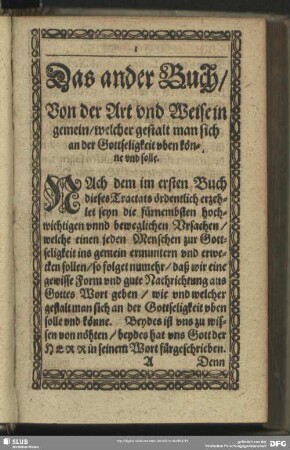 1
Das ander Buch/
Von der Art vnd Weise in
gemein/welcher gestalt man sich
an der Gottseligkeit vben kön-
ne vnd solle.
NAch dem im ersten Buch
dieses Tractats ordentlich erzeh-
let seyn die fürnembsten hoch-
wichtigen vnnd beweglichen Vrsachen/
welche einen jeden Menschen zur Gott-
seligkeit ins gemein ermuntern vnd erwe-
cken sollen/so folget numehr/daß wir eine
gewisse Form vnd gute Nachrichtung aus
Gottes Wort geben/wie vnd welcher
gestalt man sich an der Gottseligkeit vben
solle vnd könne. Beydes ist vns zu wis-
sen von nöhten/beydes hat vns Gott der
HERR in seinem Wort fürgeschrieben.
A Denn
SLUB
DFG